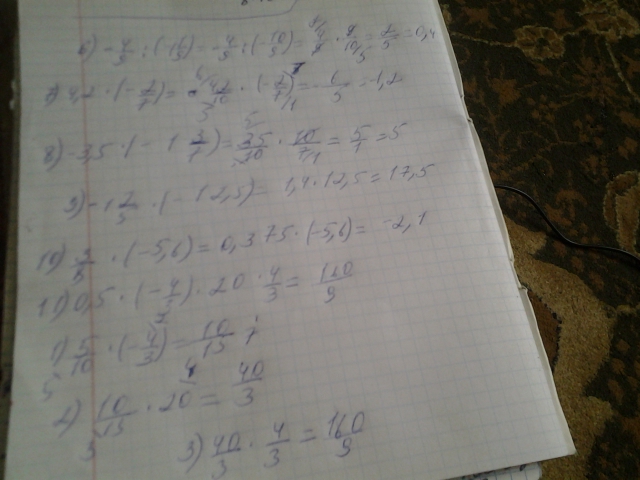 6) -4/9 : (-1 1/9) = -4/9 : (-10/9) = 4/9 · 9/10 = 2/5 = 0,4
7) 4,2 · (-2/7) = -42/10 · (-2/7) = -6/5 = -1,2
8) -3,5 · (-1 3/7) = 35/10 · 10/7 = 5/1 = 5
9) -1 2/5 · (-12,5) = 1,4 · 12,5 = 17,5
10) 3/8 · (-5,6) = 0,375 · (-5,6) = -2,1
11) 0,5 · (-4/3) · 20 · 4/3 = 160/9
1) 5/10 · (-4/3) = 10/15
2) 10/15 · 20 = 40/3
3) 40/3 · 4/3 = 160/9